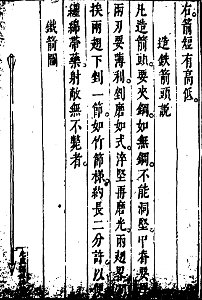 右箭短有高低
造鉄箭頭說
凡造箭頭要夾鋼如無鋼不能洞堅甲脊要
兩刃要薄利剉磨如式淬堅再磨光兩翅
挨兩翅下剉一節如竹節樣約長二分許以
纏綿帶藥射敵無不斃者
鐵箭圖